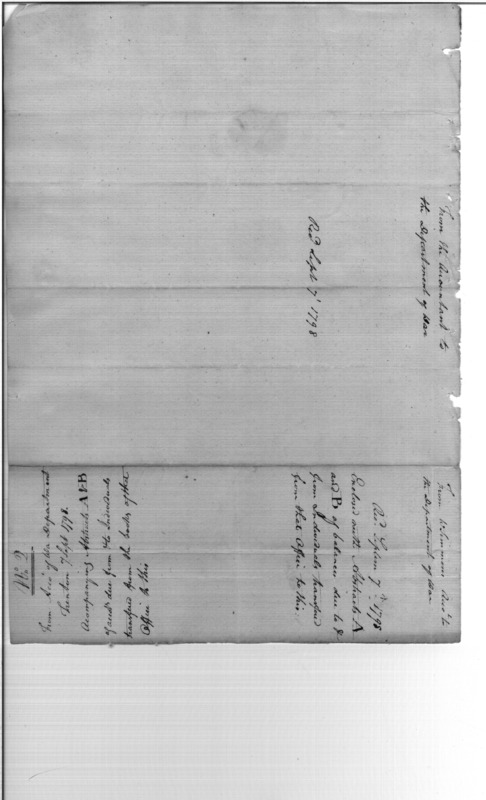 From the Accountant to
the Department of War
Recd Sept 7th 1798
From Wm Simmons Acct to
the Department of War
Recd Septem 7th 1798
Enclosed with Abstracts A
and B of balances due to &
from Individuals transferred
from that Office to this
From Acct of War Department
Trenton 7 Sept 1798.
Accompanying Abstracts A & B
of accts due from the Individuals
transferred from the books of that
Office to this